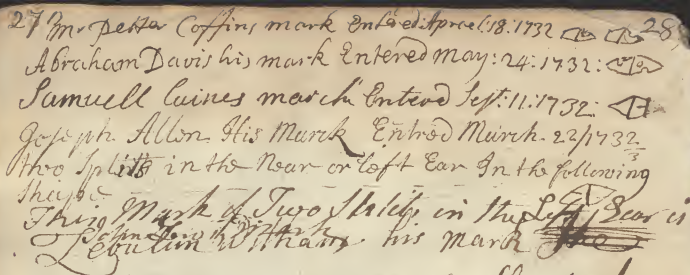 27 Mr Petter Coffins mark Entered Aprael:18:1732 28
Abraham Davis his mark Entered may:24:1732:
Samuell Caines march Entered Sept:11:1732:
Joseph Allen His Marck Entred March 22/1732/3
two Splitts in the Near or left Ear In the following
Shape
This Mark of Two Slitts in the Left Ear is
Zebulun Witham his mark